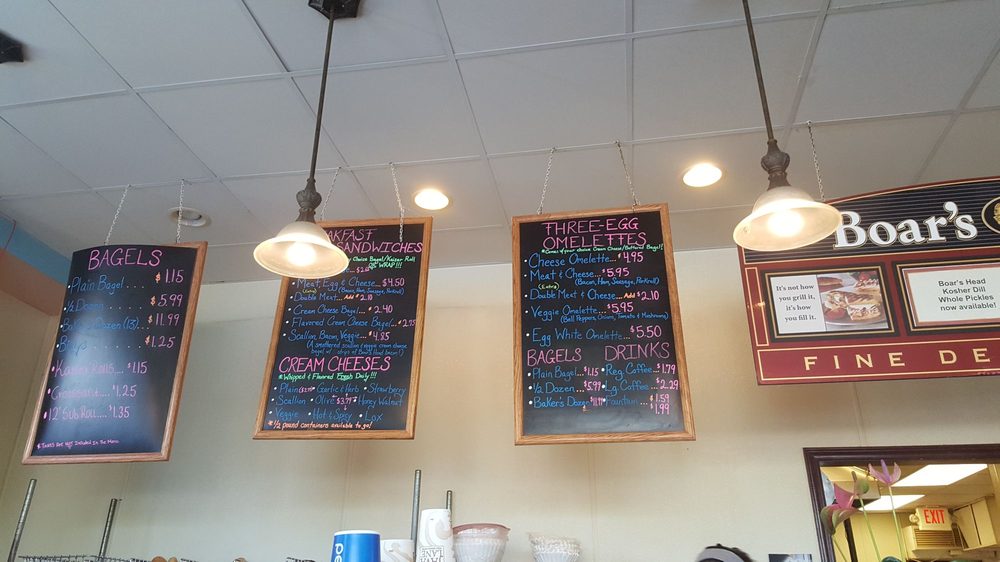 BAGELS
Plain Bagel.... $1.15
½ Dozen.... $5.99
Dozen (13)... $11.99
$1.25
Kaiser Rolls.... $1.15
$1.25
12" Sub Roll.... $1.35
*Taxes Are Not Included In the Menu
SANDWICHES
Choice Bagel/Kaiser Roll
OR WRAP!!!
Meat, Egg & Cheese.. $4.50
(Bacon, Ham, Sausage, Porkroll)
Double Meat... Add $2.10
Cream Cheese Bagel... $2.40
Flavored Cream Cheese Bagel...
Scallion, Bacon, Veggie... $4.35
(A smothered scallion & veggie cream cheese
bagel w/ strips of Boar's Head bacon!)
CREAM CHEESES
*Whipped & Flavored Fresh Daily!!!
Plain Garlic & Herb Strawberry
Scallion Olive $3.79 Honey Walnut
Veggie Hot & Spicy Lox
*½ pound containers available to go!
THREE-EGG
OMELETTES
your choice Cream Cheese/Buttered Bagel!
Cheese Omelette... $4.95
Meat & Cheese... $5.95
(Extra) (Bacon, Ham, Sausage, Porkroll)
Double Meat & Cheese... Add $2.10
Veggie Omelette... $5.95
(Bell Peppers, Onions, Tomato & Mushrooms)
Egg White Omelette... $5.50
BAGELS DRINKS
Plain Bagel... $1.15 Reg. Coffee... $1.79
½ Dozen... $5.99 Lg. Coffee... $2.29
Bakers Dozen $11.99 Fountain... $1.59
$1.99
Boar's
It's not how
you grill it,
it's how
you fill it.
Boar's Head
Kosher Dill
Whole Pickles
now available!
FINE DE
EXIT